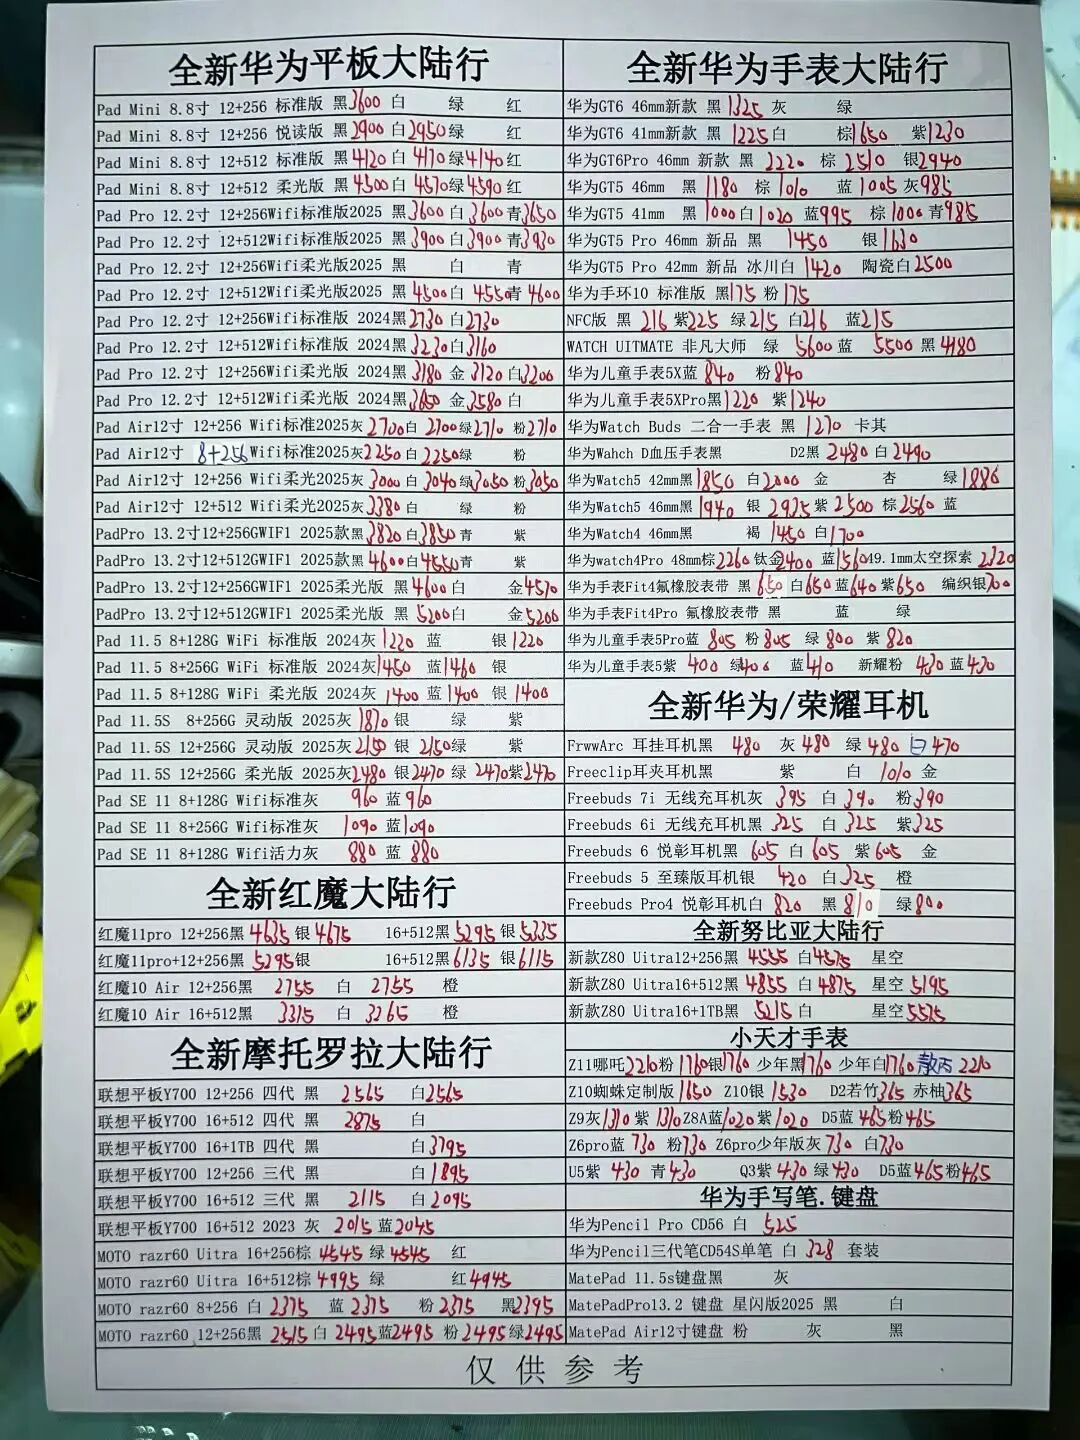 全新华为平板大陆行
Pad Mini 8.8寸 12+256 标准版 黑3600 白 绿 红
Pad Mini 8.8寸 12+256 悦读版 黑2900 白2950 绿 红
Pad Mini 8.8寸 12+512 标准版 黑4120 白 4170 绿4140 红
Pad Mini 8.8寸 12+512 柔光版 黑4500 白 4570 绿4590 红
Pad Pro 12.2寸 12+256Wifi标准版2025 黑3600 白 3600 青3650
Pad Pro 12.2寸 12+512Wifi标准版2025 黑3900 白3900 青3930
Pad Pro 12.2寸 12+256Wifi柔光版2025 黑 白 青
Pad Pro 12.2寸 12+512Wifi柔光版2025 黑4500 白 4550 青 4600
Pad Pro 12.2寸 12+256Wifi标准版 2024黑2730 白2730
Pad Pro 12.2寸 12+512Wifi标准版 2024黑3230 白3160
Pad Pro 12.2寸 12+256Wifi柔光版 2024黑3180 金 3120 白3200
Pad Pro 12.2寸 12+512Wifi柔光版 2024黑 金 3580 白
Pad Air12寸 12+256 Wifi标准2025灰2700 白 2700 绿2710 粉2710
Pad Air12寸 8+256 Wifi标准2025灰2250 白 2250 绿 粉
Pad Air12寸 12+256 Wifi柔光2025灰3000 白 3040 绿3050 粉3050
Pad Air12寸 12+512 Wifi柔光2025灰3380 白 绿 粉
PadPro 13.2寸12+256GWIF1 2025款黑3820 白3850 青 紫
PadPro 13.2寸12+512GWIF1 2025款黑4600 白4550 青 紫
PadPro 13.2寸12+256GWIF1 2025柔光版 黑4600 白 金4570
PadPro 13.2寸12+512GWIF1 2025柔光版 黑 5200 白 金 5200
Pad 11.5 8+128G WiFi 标准版 2024灰 1220 蓝 银 1220
Pad 11.5 8+256G WiFi 标准版 2024灰1450 蓝1460 银
Pad 11.5 8+128G WiFi 柔光版 2024灰 1400 蓝 1400 银 1400
Pad 11.5S 8+256G 灵动版 2025灰 1870 银 绿 紫
Pad 11.5S 12+256G 灵动版 2025灰2150 银 2150 绿 紫
Pad 11.5S 12+256G 柔光版 2025灰2480 银2470 绿 2470 紫2470
Pad SE 11 8+128G Wifi标准灰 960 蓝 960
Pad SE 11 8+256G Wifi标准灰 1090 蓝1090
Pad SE 11 8+128G Wifi活力灰 880 蓝 880
全新红魔大陆行
红魔11pro 12+256黑 4635 银 4675 16+512黑 5295 银 5335
红魔11pro+12+256黑 5295 银 16+512黑6135 银 6115
红魔10 Air 12+256黑 2755 白 2755 橙
红魔10 Air 16+512黑 3315 白 3265 橙
全新摩托罗拉大陆行
联想平板Y700 12+256 四代 黑 2565 白2565
联想平板Y700 16+512 四代 黑 2875 白
联想平板Y700 16+1TB 四代 黑 白3795
联想平板Y700 12+256 三代 黑 白1895
联想平板Y700 16+512 三代 黑 2115 白 2095
联想平板Y700 16+512 2023 灰 2015 蓝2045
MOTO razr60 Uitra 16+256棕 4545 绿 4545 红
MOTO razr60 Uitra 16+512棕 4995 绿 红 4945
MOTO razr60 8+256 白 2375 蓝 2375 粉 2375 黑2395
MOTO razr60 12+256黑 2515 白 2495 蓝2495 粉 2495 绿2495
全新华为手表大陆行
华为GT6 46mm新款 黑 1325 灰 绿
华为GT6 41mm新款 黑 1225 白 棕1650 紫1230
华为GT6Pro 46mm 新款 黑 2220 棕 2510 银2940
华为GT5 46mm 黑 1180 棕 1010 蓝 1005 灰985
华为GT5 41mm 黑 1000 白1020 蓝995 棕 1000 青985
华为GT5 Pro 46mm 新品 黑 1450 银 1630
华为GT5 Pro 42mm 新品 冰川白 1420 陶瓷白2500
华为手环10 标准版 黑175 粉 175
NFC版 黑 216 紫225 绿 215 白216 蓝215
WATCH UITMATE 非凡大师 绿 5600 蓝 5500 黑 4180
华为儿童手表5X蓝 840 粉840
华为儿童手表5XPro黑1220 紫1240
华为Watch Buds 二合一手表 黑 1270 卡其
华为Wahch D血压手表黑 D2黑 2480 白 2490
华为Watch5 42mm黑1850 白2000 金 杏 绿 1886
华为Watch5 46mm黑1940 银 2925 紫 2500 棕 2560 蓝
华为Watch4 46mm黑 褐 1450 白1700
华为watch4Pro 48mm棕2260 钛金2400 蓝1560 49.1mm太空探索 2320
华为手表Fit4氟橡胶表带 黑 650 白650 蓝640 紫650 编织银700
华为手表Fit4Pro 氟橡胶表带 黑 蓝 绿
华为儿童手表5Pro蓝 805 粉 805 绿 800 紫 820
华为儿童手表5紫 400 绿400 蓝410 新耀粉 430 蓝 430
全新华为/荣耀耳机
FrwwArc 耳挂耳机黑 480 灰 480 绿 480 白470
Freeclip耳夹耳机黑 紫 白 1010 金
Freebuds 7i 无线充耳机灰 395 白 390 粉390
Freebuds 6i 无线充耳机黑 325 白 325 紫325
Freebuds 6 悦彰耳机黑 605 白 605 紫 605 金
Freebuds 5 至臻版耳机银 420 白325 橙
Freebuds Pro4 悦彰耳机白 820 黑 810 绿 800
全新努比亚大陆行
新款Z80 Uitra12+256黑 4555 白4575 星空
新款Z80 Uitra16+512黑 4855 白 4875 星空 5195
新款Z80 Uitra16+1TB黑 5215 白 星空5515
小天才手表
Z11哪吒2210 粉 1760 银1760 少年黑1760 少年白1760 敖丙 2210
Z10蜘蛛定制版 1650 Z10银 1530 D2若竹365 赤柚365
Z9灰1310 紫 1310 Z8A蓝1020 紫1020 D5蓝 465 粉465
Z6pro蓝 730 粉730 Z6pro少年版灰 730 白730
U5紫 430 青430 Q3紫 430 绿 430 D5蓝465 粉465
华为手写笔.键盘
华为Pencil Pro CD56 白 525
华为Pencil三代笔CD54S单笔 白 328 套装
MatePad 11.5s键盘黑 灰
MatePadPro13.2 键盘 星闪版2025 黑 白
MatePad Air12寸键盘 粉 灰 黑
仅供参考